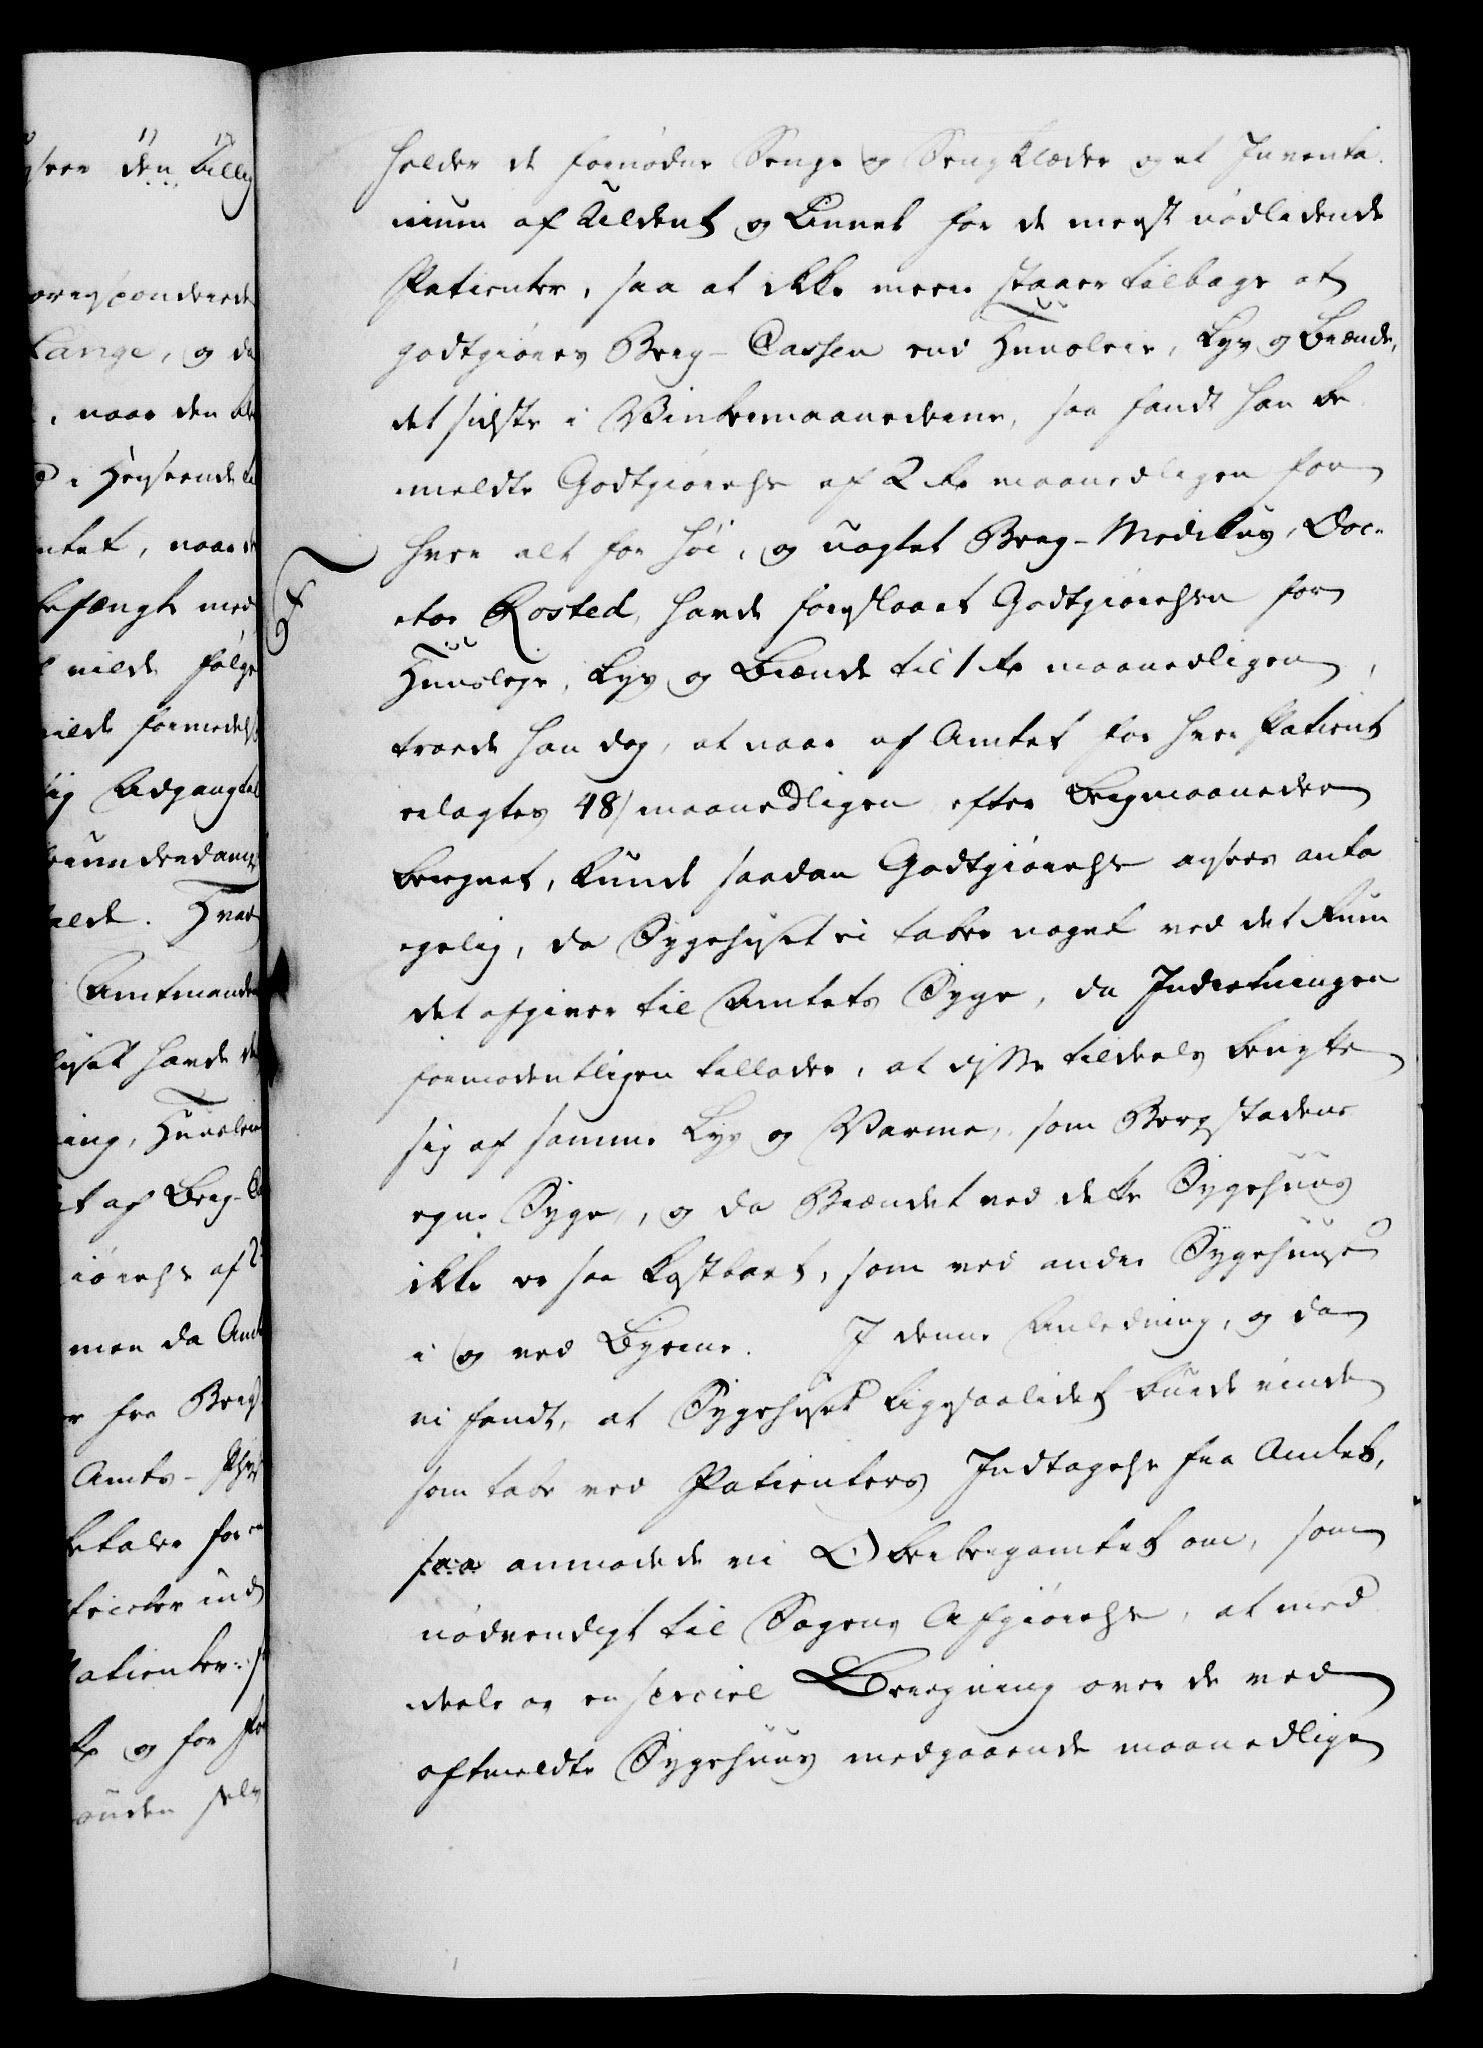 holder de fornødne Senge og Sengklæder og et Inventa-
rium af Uldent og Linnet for de meest nødlidende
Patienter, saa at ikke meere staaer tilbage at
godtgiøres Berg-Cassen end Huusleie, Lys og Brænde,
det sidste i Vintermaanederne, saa fandt han be-
meldte Godtgiørelse af 2 Rd maanedligen for
hver alt for høi, og uagtet Berg-Medikus, Doc-
tor Rosted, havde foreslaaet Godtgiørelsen for
Huusleje, Lys og Brænde til 1 Rd maanedligen,
troede han dog, at naar af Amtet for hver Patient
erlagtes 48 s maanedligen efter Bergmaaneder
beregnet, kunde saadan Godtgiørelse ansees anta-
gelig, da Sygehuset ei taber noget ved det Rum
det afgiver til Amtets Syge, da Indretningen
formodentligen tillader, at disse tildeels benytte
sig af samme Lys og Varme, som Bergstadens
egne Syge, og da Brændet ved dette Sygehuus
ikke er saa kostbart, som ved andre Sygehuuse
i og ved Byerne. I denne Anledning, og da
vi fandt, at Sygehuset ligesaalidet burde vinde
som tabe ved Patienters Indtagelse fra Amtet,
saa anmodede vi Oberbergamtet om, som
nødvendigt til Sagens Afgiørelse, at med-
deele os en speciel Beregning over de ved
oftmeldte Sygehuus medgaaende maanedlige